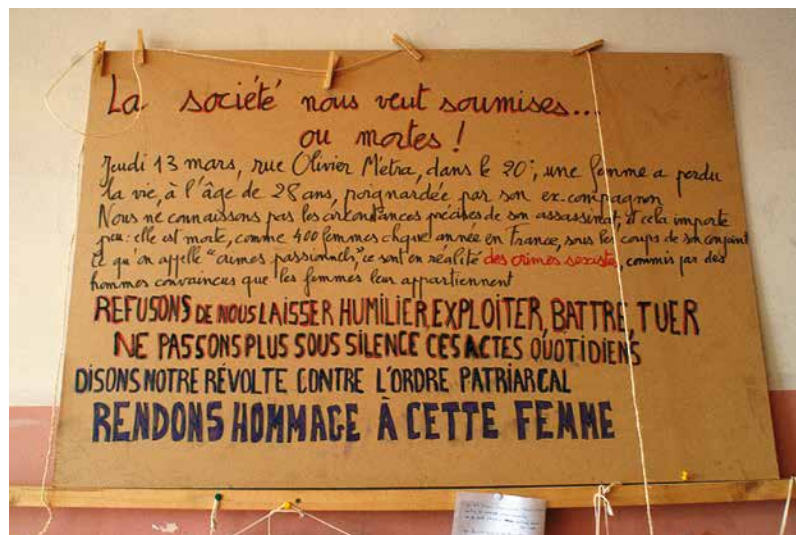 La société nous veut soumises...
ou mortes !
Jeudi 13 mars, rue Olivier Métra, dans le 20e, une femme a perdu
la vie, à l'âge de 28 ans, poignardée par son ex-compagnon
Nous ne connaissons pas les circonstances précises de son assassinat, et cela importe
peu : elle est morte, comme 400 femmes chque année en France, sous les coups de son conjoint
Ce qu'on appelle "crimes passionnels", ce sont en réalité des crimes sexistes, commis par des
hommes convaincus que les femmes leur appartiennent
REFUSONS DE NOUS LAISSER HUMILIER, EXPLOITER, BATTRE, TUER
NE PASSONS PLUS SOUS SILENCE CES ACTES QUOTIDIENS
DISONS NOTRE RÉVOLTE CONTRE L'ORDRE PATRIARCAL
RENDONS HOMMAGE À CETTE FEMME